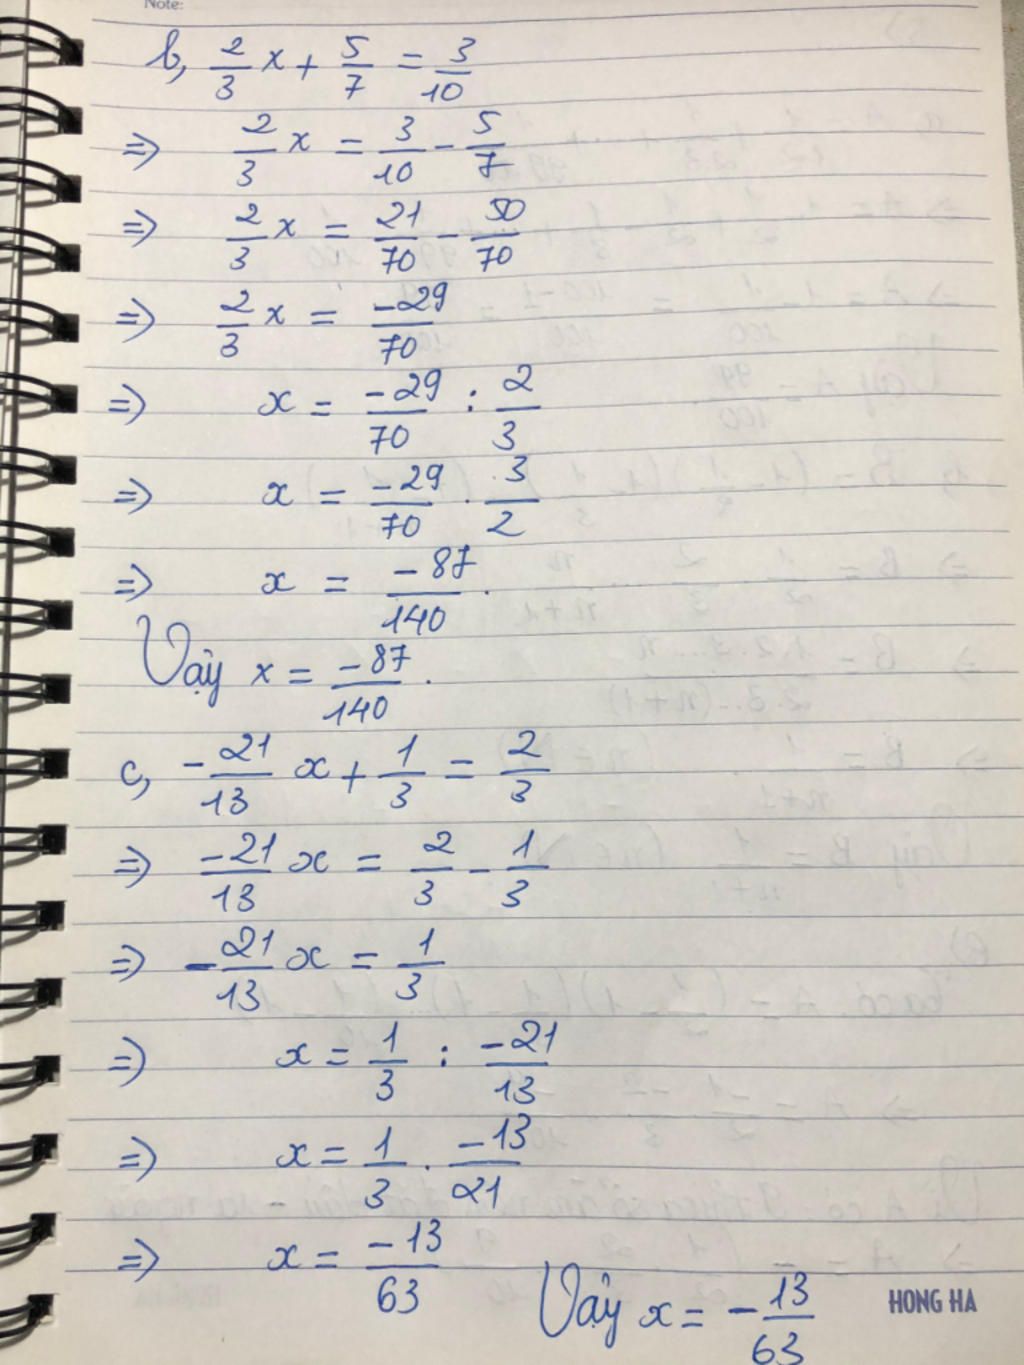 Note:
b, 2/3 x + 5/7 = 3/10
=> 2/3 x = 3/10 - 5/7
=> 2/3 x = 21/70 - 50/70
=> 2/3 x = -29/70
=> x = -29/70 : 2/3
=> x = -29/70 . 3/2
=> x = -87/140 .
Vậy x = -87/140 .
c, -21/13 x + 1/3 = 2/3
=> -21/13 x = 2/3 - 1/3
=> -21/13 x = 1/3
=> x = 1/3 : -21/13
=> x = 1/3 . -13/21
=> x = -13/63
Vậy x = -13/63
HONG HA